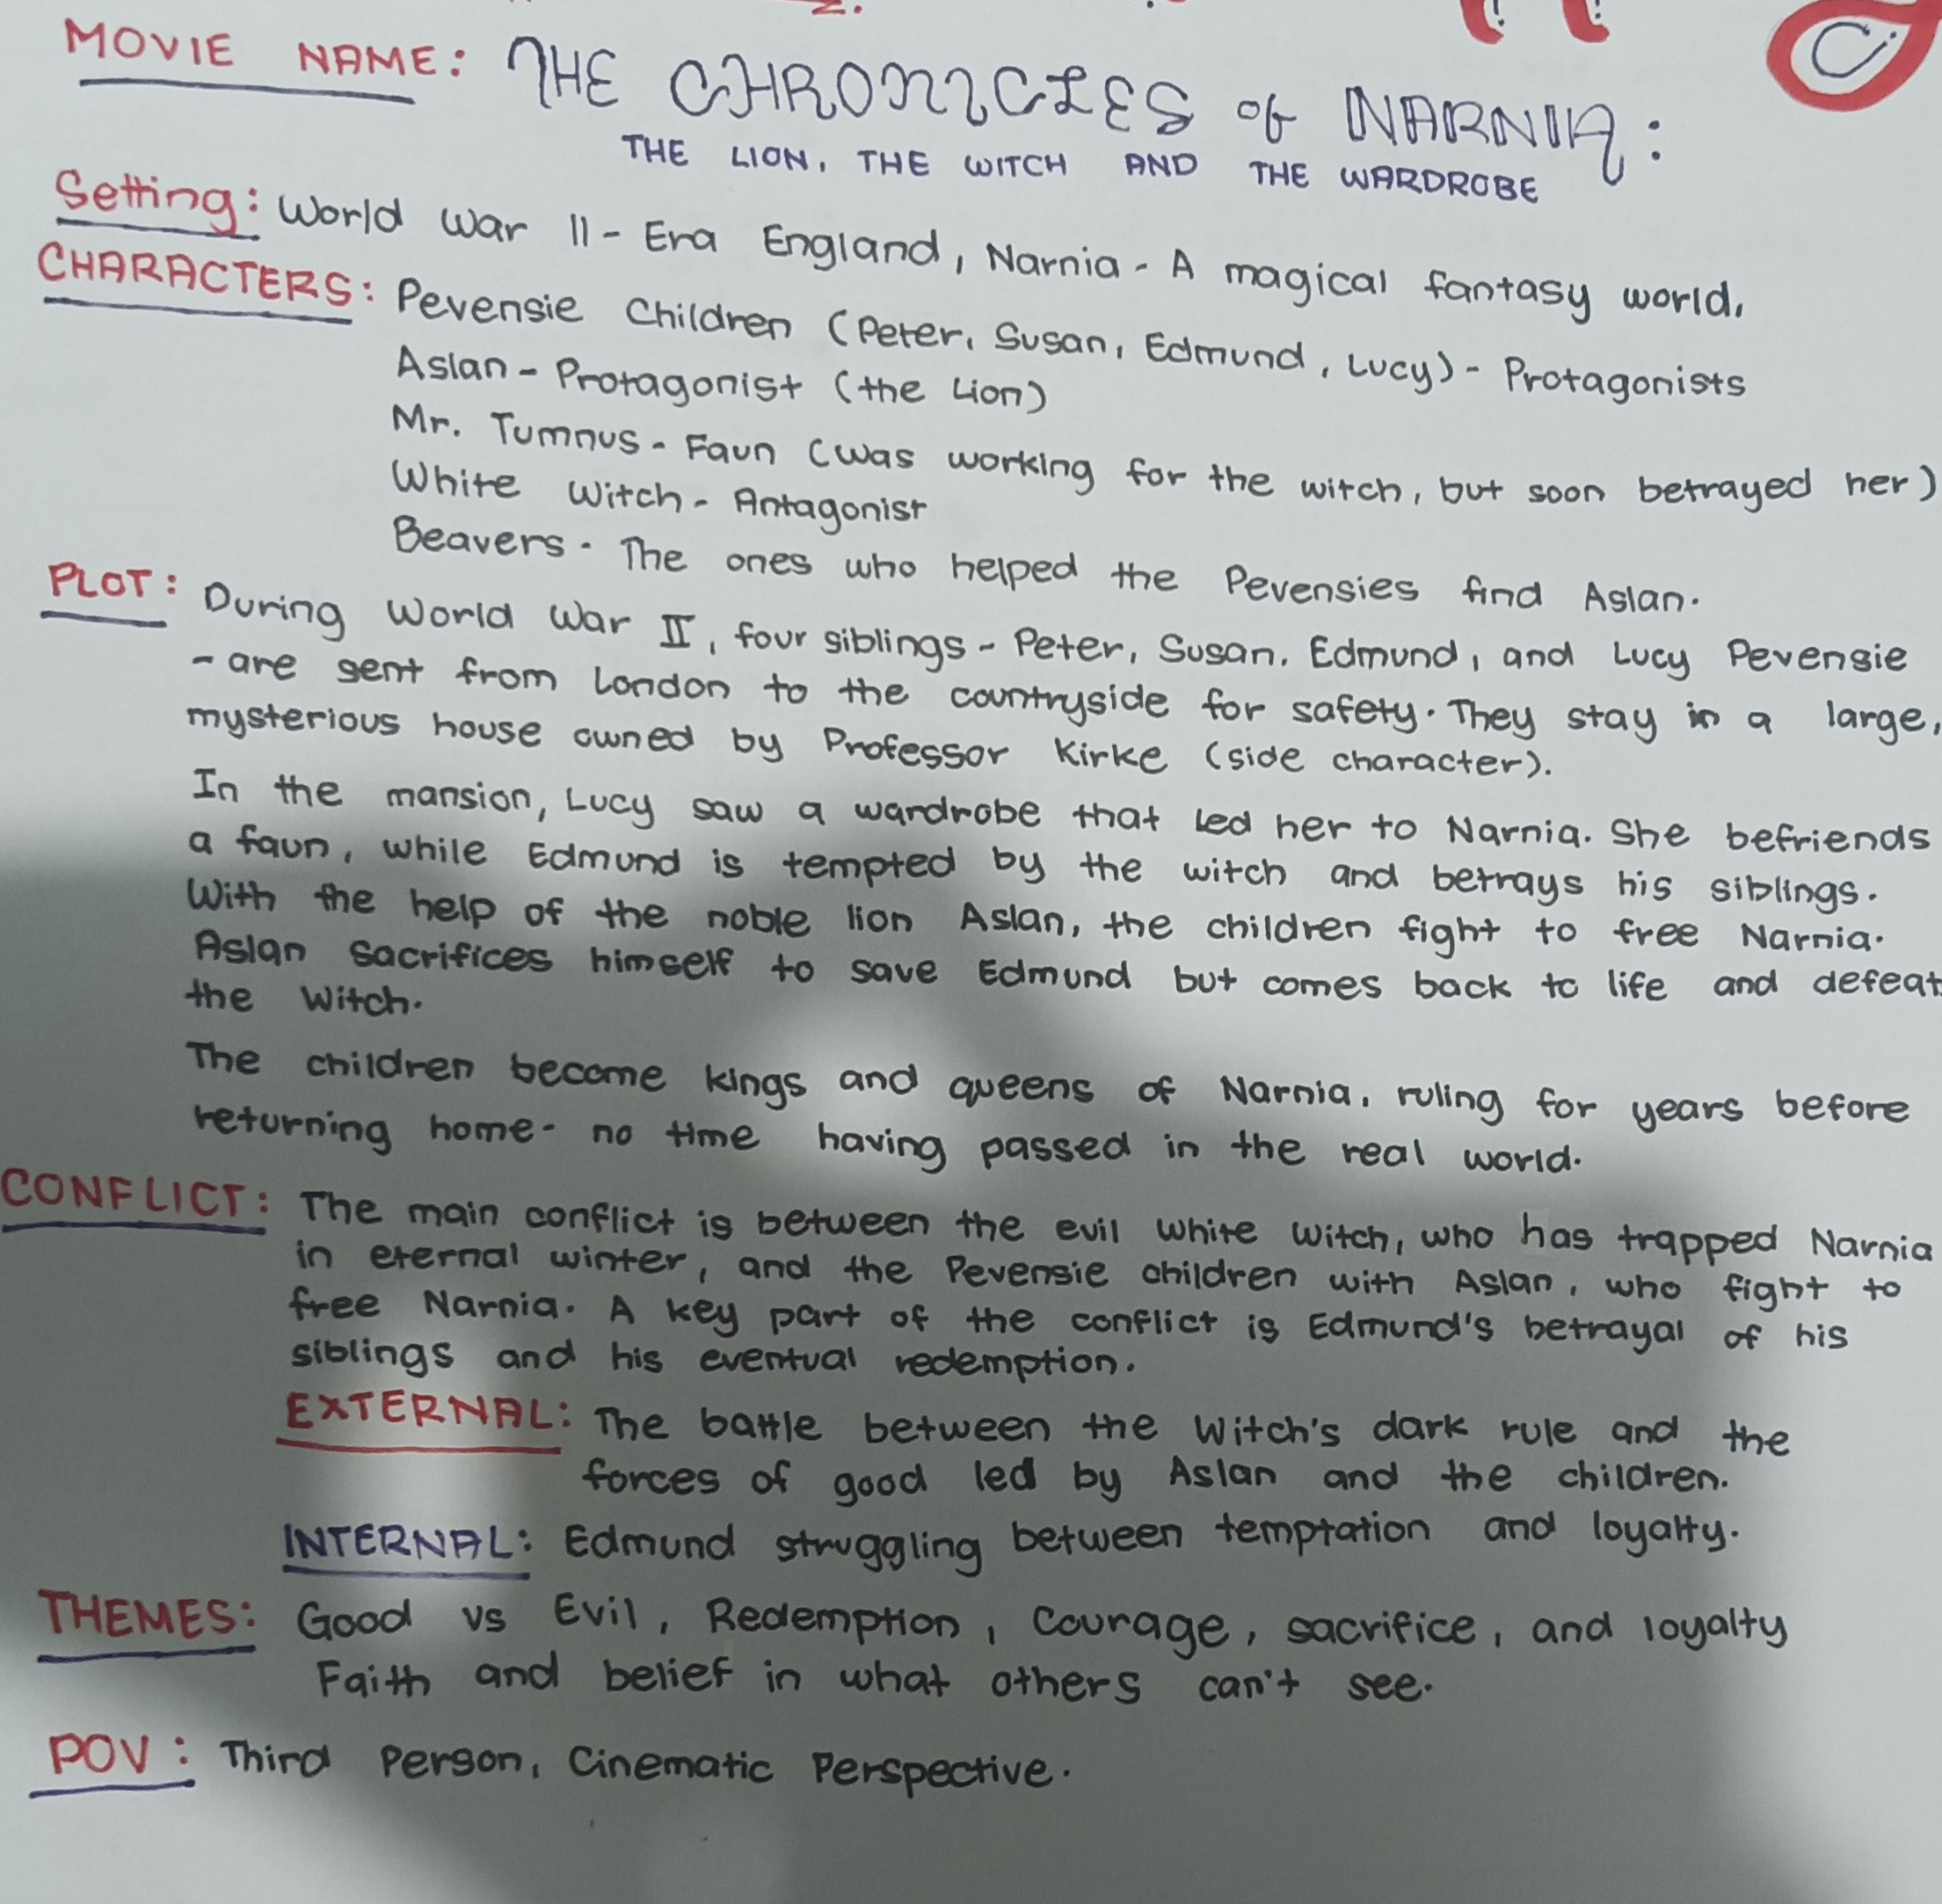 MOVIE NAME: THE CHRONICLES of NARNIA:
THE LION, THE WITCH AND THE WARDROBE
Setting: World War II - Era England, Narnia - A magical fantasy world.
CHARACTERS: Pevensie Children (Peter, Susan, Edmund, Lucy) - Protagonists
Aslan - Protagonist (the Lion)
Mr. Tumnus - Faun (was working for the witch, but soon betrayed her)
White Witch - Antagonist
Beavers - The ones who helped the Pevensies find Aslan.
PLOT: During World War II, four siblings - Peter, Susan, Edmund, and Lucy Pevensie
- are sent from London to the countryside for safety. They stay in a large,
mysterious house owned by Professor Kirke (side character).
In the mansion, Lucy saw a wardrobe that led her to Narnia. She befriends
a faun, while Edmund is tempted by the witch and betrays his siblings.
With the help of the noble lion Aslan, the children fight to free Narnia.
Aslan sacrifices himself to save Edmund but comes back to life and defeat
the Witch.
The children become kings and queens of Narnia, ruling for years before
returning home - no time having passed in the real world.
CONFLICT: The main conflict is between the evil White Witch, who has trapped Narnia
in eternal winter, and the Pevensie children with Aslan, who fight to
free Narnia. A key part of the conflict is Edmund's betrayal of his
siblings and his eventual redemption.
EXTERNAL: The battle between the Witch's dark rule and the
forces of good led by Aslan and the children.
INTERNAL: Edmund struggling between temptation and loyalty.
THEMES: Good vs Evil, Redemption, Courage, sacrifice, and loyalty
Faith and belief in what others can't see.
POV: Third Person, Cinematic Perspective.